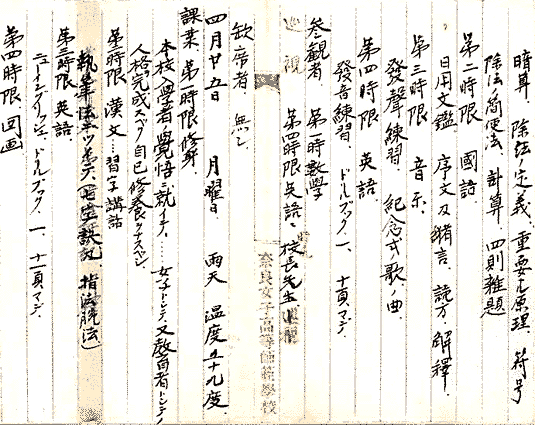 暗算、除法ノ定義、重要ナ原理、符号
除法ノ簡便法、計算、四則雑題
第二時限 國語
日用文鑑 序文及緒言、読方、解釋
第三時限 音樂
發聲練習、紀念式ノ歌ノ曲
第四時限 英語
發音練習、ドルブック一、十頁マデ
参観者、第一時数學
第四時限英語、校長先生
欠席者 無シ
奈良女子高等師範學校
四月廿五日 月曜日 雨天 温度五十九度
課業、第一時限修身、
本校入學者ノ覚悟ニ就イテ……女子トシテ又教育者トシテノ
人格完成スベク自己修養ナスベシ
第二時限 漢文……習字講話
執筆法ニツ第六、
第三時限 英語
ドルブック、一、十一頁マデ
第四時限 図画